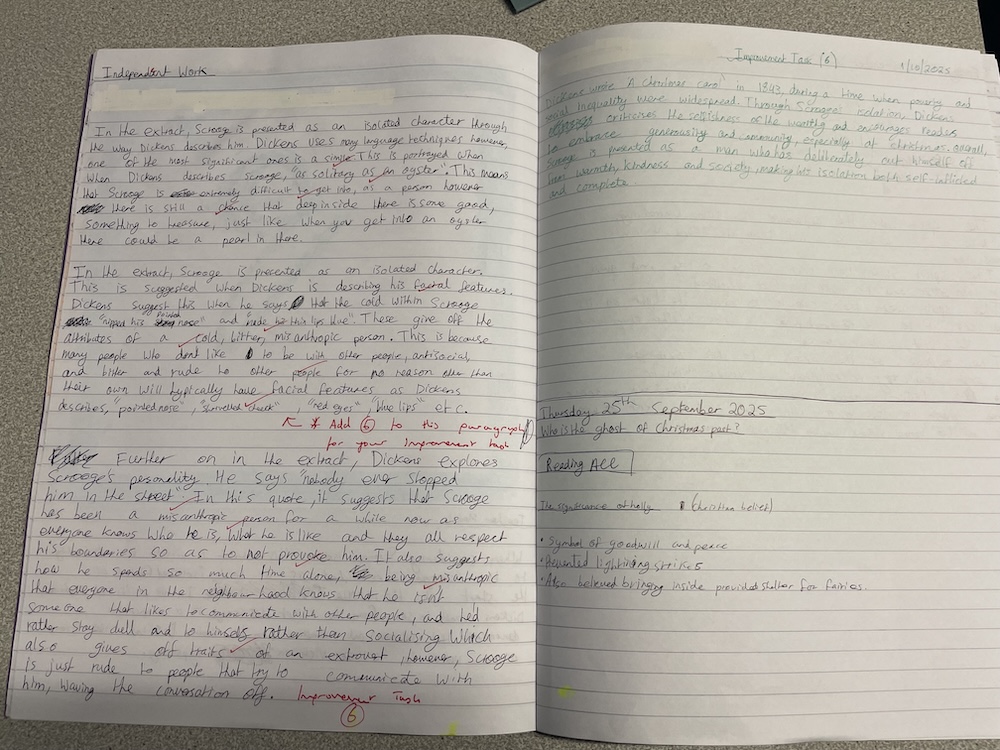 Independent Work
In the extract, Scrooge is presented as an isolated character through
the way Dickens describes him. Dickens uses many language techniques however,
one of the most significant ones is a simile. This is portrayed when
when Dickens describes scrooge, "as solitary as an oyster". This means
that Scrooge is extremely difficult to get into, as a person however
there is still a chance that deep inside there is some good,
something to treasure, just like when you get into an oyster
there could be a pearl in there.
In the extract, Scrooge is presented as an isolated character.
This is suggested when Dickens is describing his facial features.
Dickens suggest this when he says that the cold within Scrooge
"nipped his pointed nose" and "made his thin lips blue". These give off the
attributes of a cold, bitter, misanthropic person. This is because
many people who dont like to be with other people, antisocial
and bitter and rude to other people for no reason other than
their own will typically have facial features as Dickens
describes, "pointed nose", "shrivelled cheek", "red eyes", "blue lips" etc.
* Add 6 to this paragraph
for your improvement task
Further on in the extract, Dickens explores
Scrooge's personality. He says "nobody ever stopped
him in the street". In this quote, it suggests that Scrooge
has been a misanthropic person for a while now as
everyone knows who he is, what he is like and they all respect
his boundaries so as to not provoke him. It also suggests
how he spends so much time alone, being misanthropic
that everyone in the neighbour-hood knows that he isnt
someone that likes to communicate with other people, and he'd
rather stay dull and to himself rather than socialising which
also gives off traits of an extrovert, however, Scrooge
is just rude to people that try to communicate with
him, waving the conversation off. Improvement Task
6
Improvement Task (6) 1/10/2025
Dickens wrote 'A Christmas carol' in 1843, during a time when poverty and
social inequality were widespread. Through Scrooge's isolation, Dickens
criticises the selfishness of the wealthy and encourages readers
to embrace generousity and community, especially at christmas. Overall,
Scrooge is presented as a man who has deliberately cut himself off
from warmth, kindness and society, making his isolation both self-inflicted
and complete.
Thursday 25th September 2025
Who is the ghost of Christmas past?
Reading ACC
The significance of holly (Christian belief)
• Symbol of goodwill and peace
• Prevented lightning strikes
• Also believed bringing inside provided shelter for fairies.